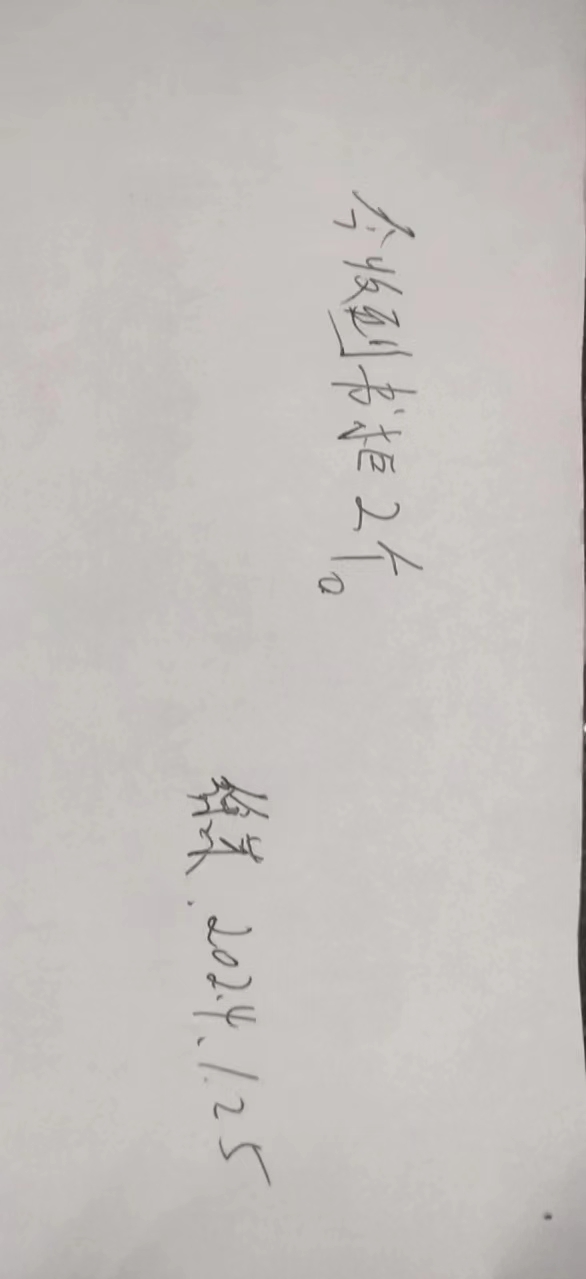 今收到书柜2个。
2024.1.25